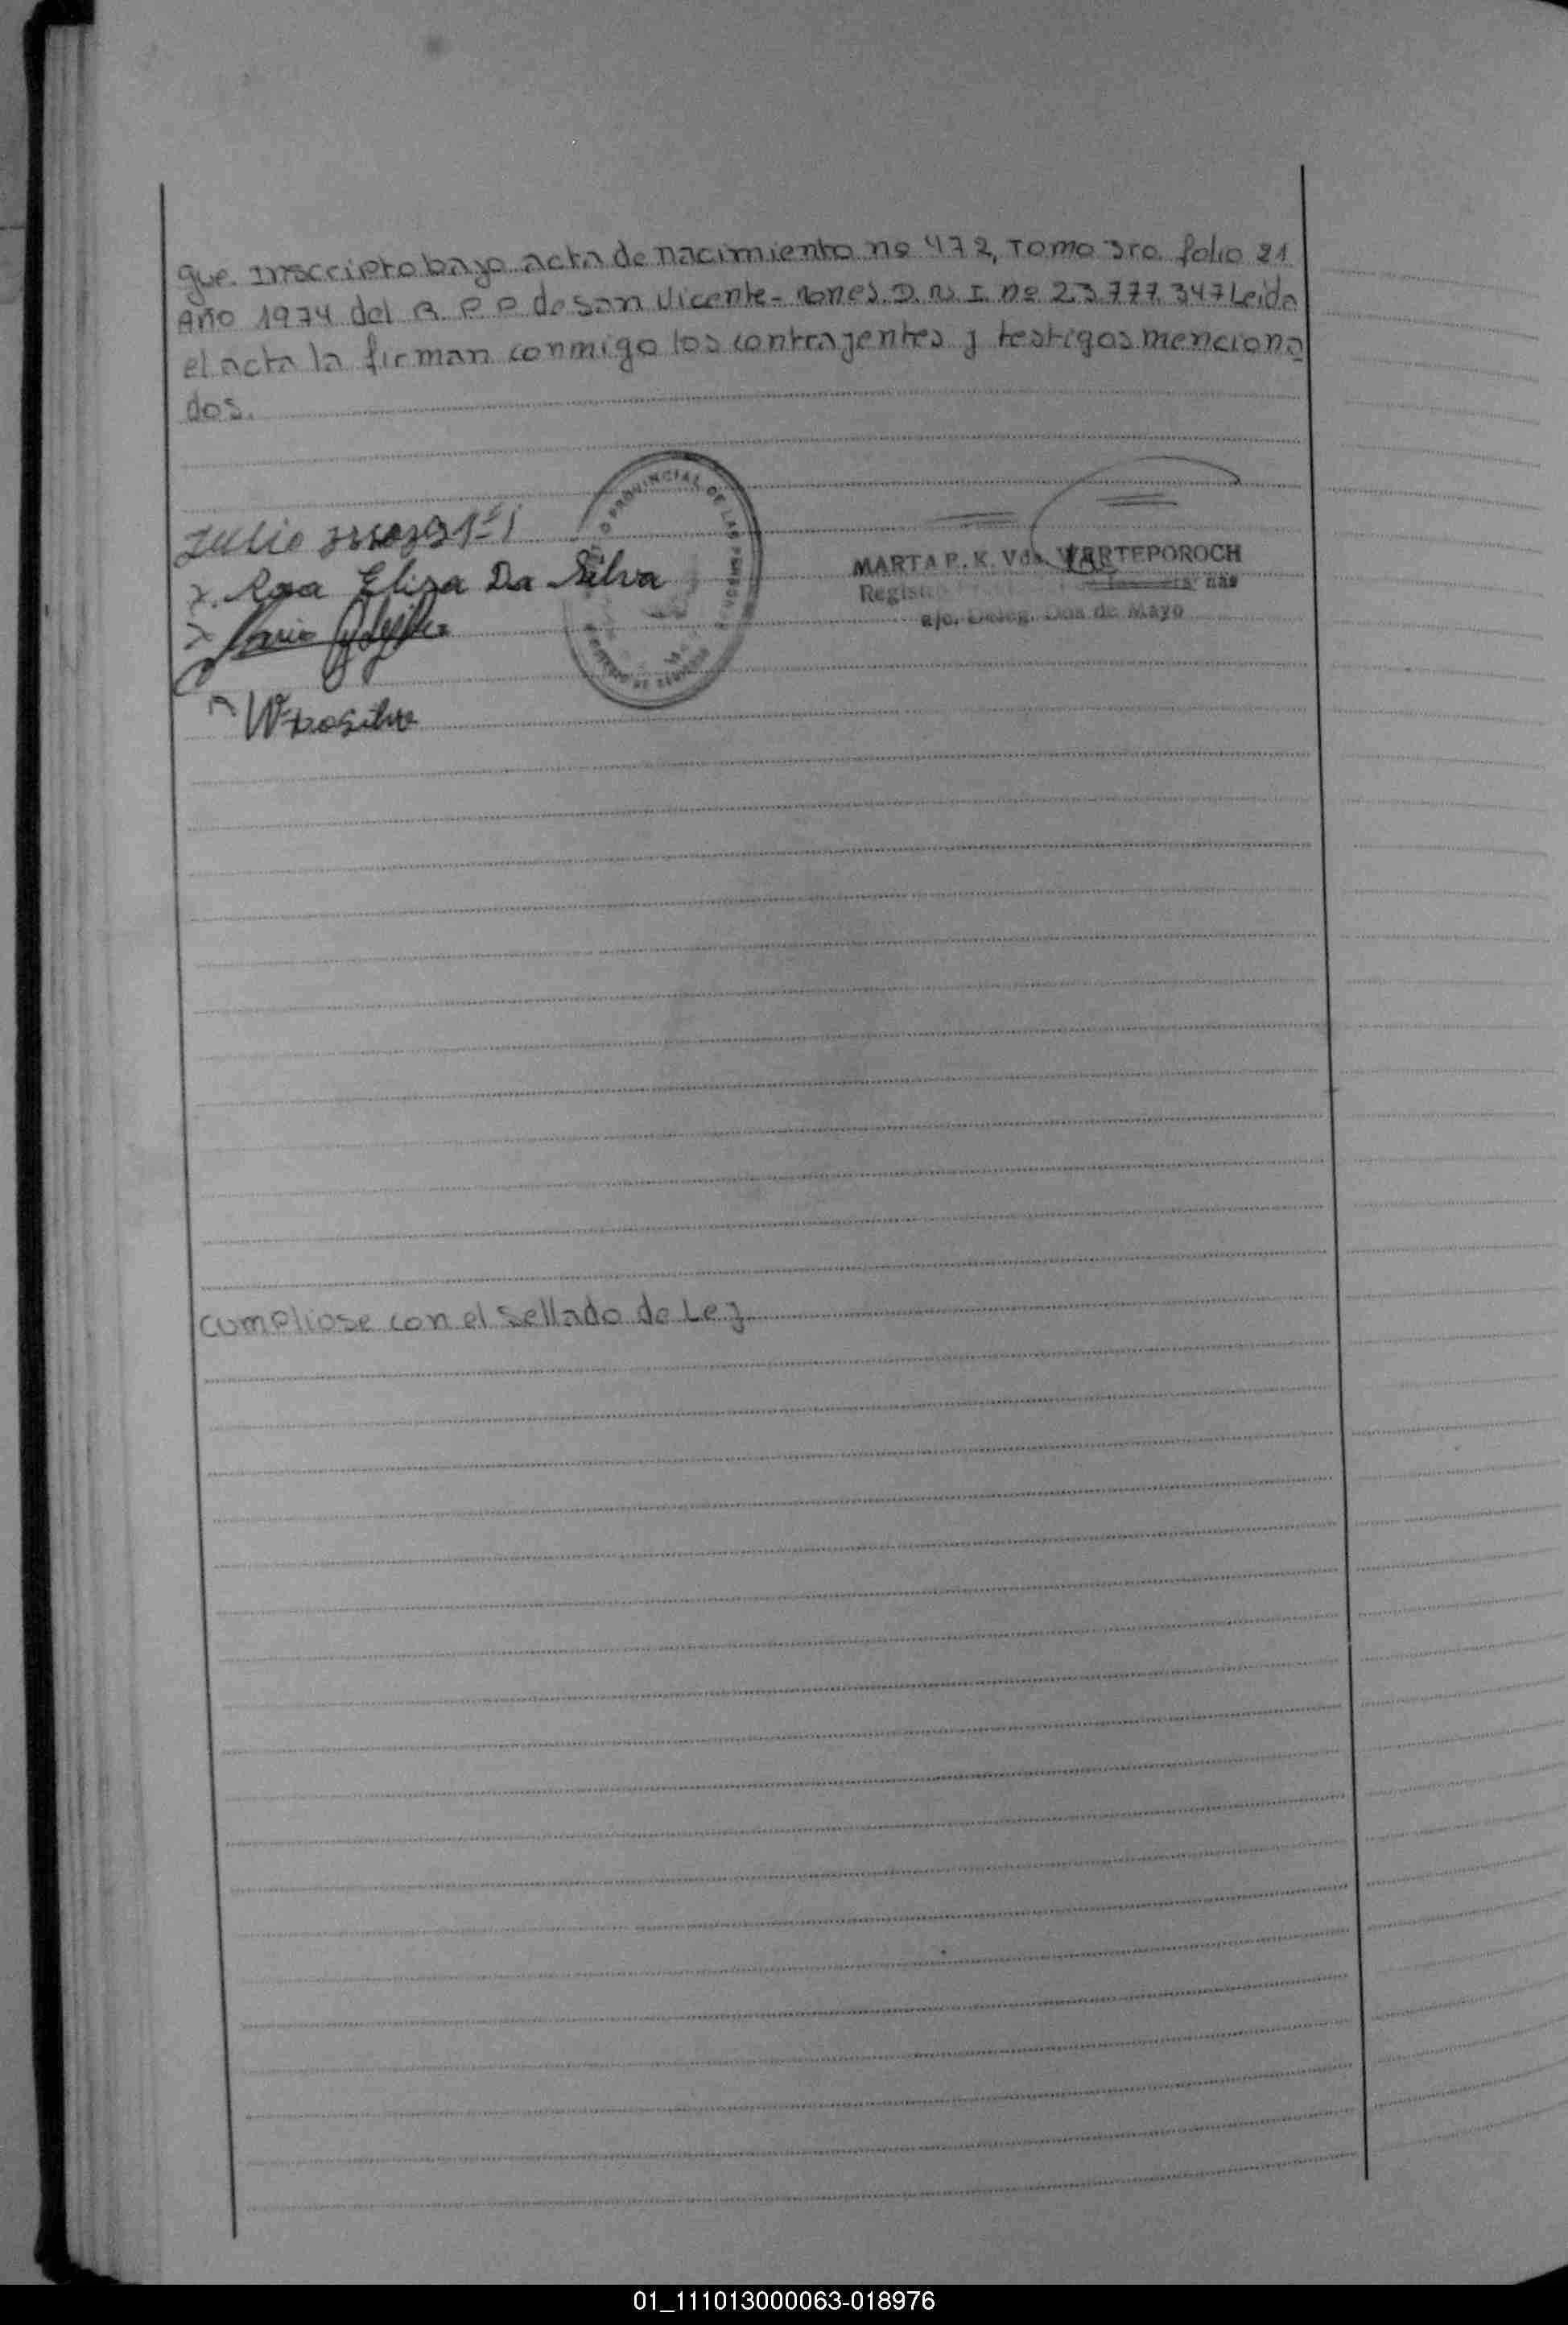 que. Inscripto bajo acta de nacimiento no 472, Tomo 3ro. folio 21
Año 1974 del R. P. P de San Vicente - nones. D. N. I. no 23.777.347 Leida
el acta la firman conmigo los contrayentes y testigos menciona
dos.
PROVINCIAL DE LAS
Julio
x. Rosa Eliza Da Silva
MARTA P. K. Vda. WARTEPOROCH
Registro
a/c. Deleg. Dos de Mayo
cumpliose con el sellado de Ley
01_111013000063-018976